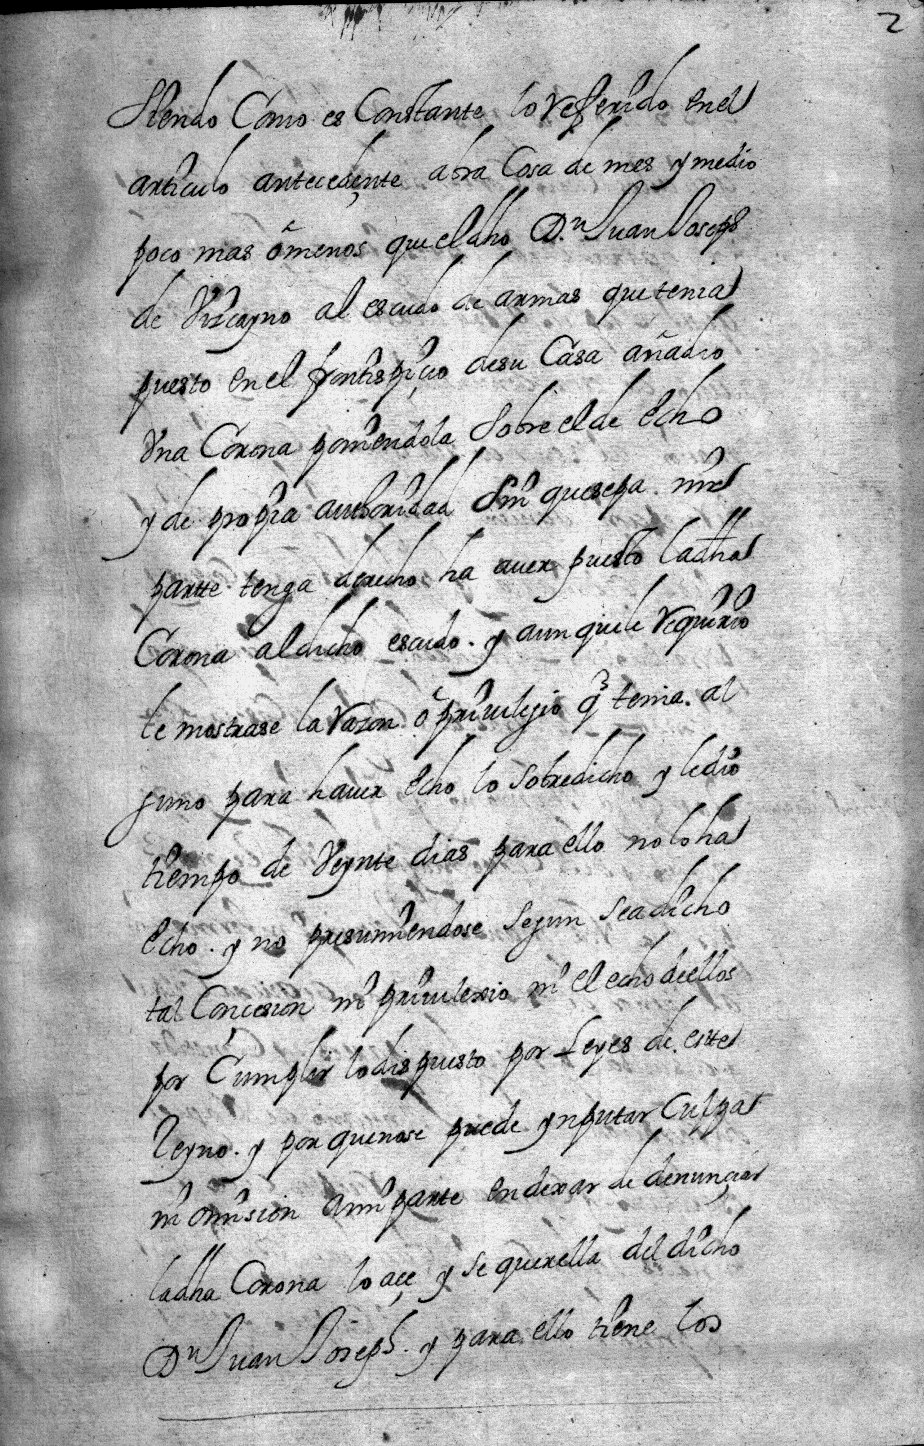 2
Siendo Como es Constante lo Referido en el
articulo antecedente abra Cosa de mes y medio
poco mas ô menos que el dho Dn Juan Joseph
de Viscayno al escudo de armas que tenia
puesto en el frontispiçio de su Casa añadio
Vna Corona poniendola sobre el de echo
y de propia authoridad sin que sepa mi
partte tenga derecho ha aver puesto la dha
Corona al dicho escudo. y aunque le Requirio
le mostrase la Razon ô privilejio q tenia. al
guno para haver echo lo sobredicho y le dio
tiempo de Veynte dias para ello no lo ha
echo. y no presumiendose segun sea dicho
tal Concesion ni privilexio ni el echo de ellos
por Cumplir lo dispuesto por Leyes de este
Reyno. y por que no se puede ynputar Culpa
ni omision a mi parte en dexar de denunçiar
la dha Corona lo açe y se querella del dicho
Dn Juan Joseph. y para ello tiene los